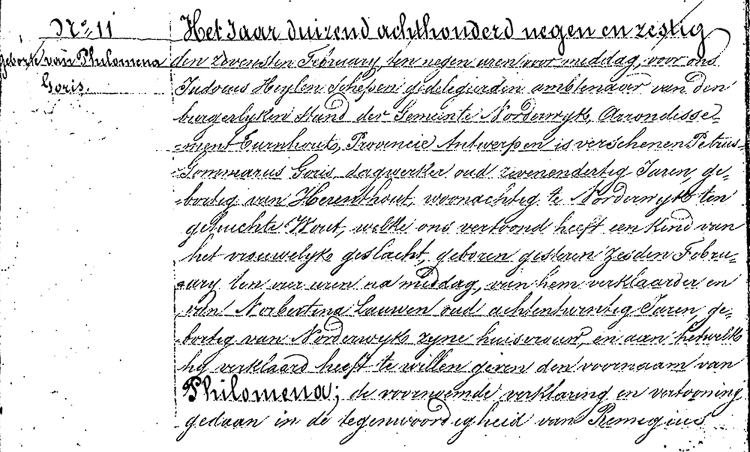 No 11
Geborte van Philomena
Goris.
Het Jaar duizend achthonderd negen en zestig
den zevensten February, ten negen uren voor middag, voor ons
Judocus Heylen Schepen gedeligeerden ambtenaer van den
burgerlyken Stand der Gemeente Norderwyk, Arrondisse-
-ment Turnhout, Provincie Antwerpen is verschenen Petrus
Gommarus Goris, dagwerker oud zevenendertig Jaren, ge-
-bortig van Herenthout, woonachtig te Norderwyk ten
gehuchte Wout, welke ons vertoond heeft een Kind van
het vrouwelyk geslacht, geboren gisteren zesden Febru-
-ary ten uren na middag, van hem verklaarder en
van Norbertina Lauwen oud achtentwintig Jaren, ge-
-bortig van Norderwyk zyne huisvrouw, en aan hetwelk
hy verklaard heeft te willen geven den voornaam van
Philomena; de voornoemde verklaring en vertooning
gedaan in de tegenwoordigheid van Remigius